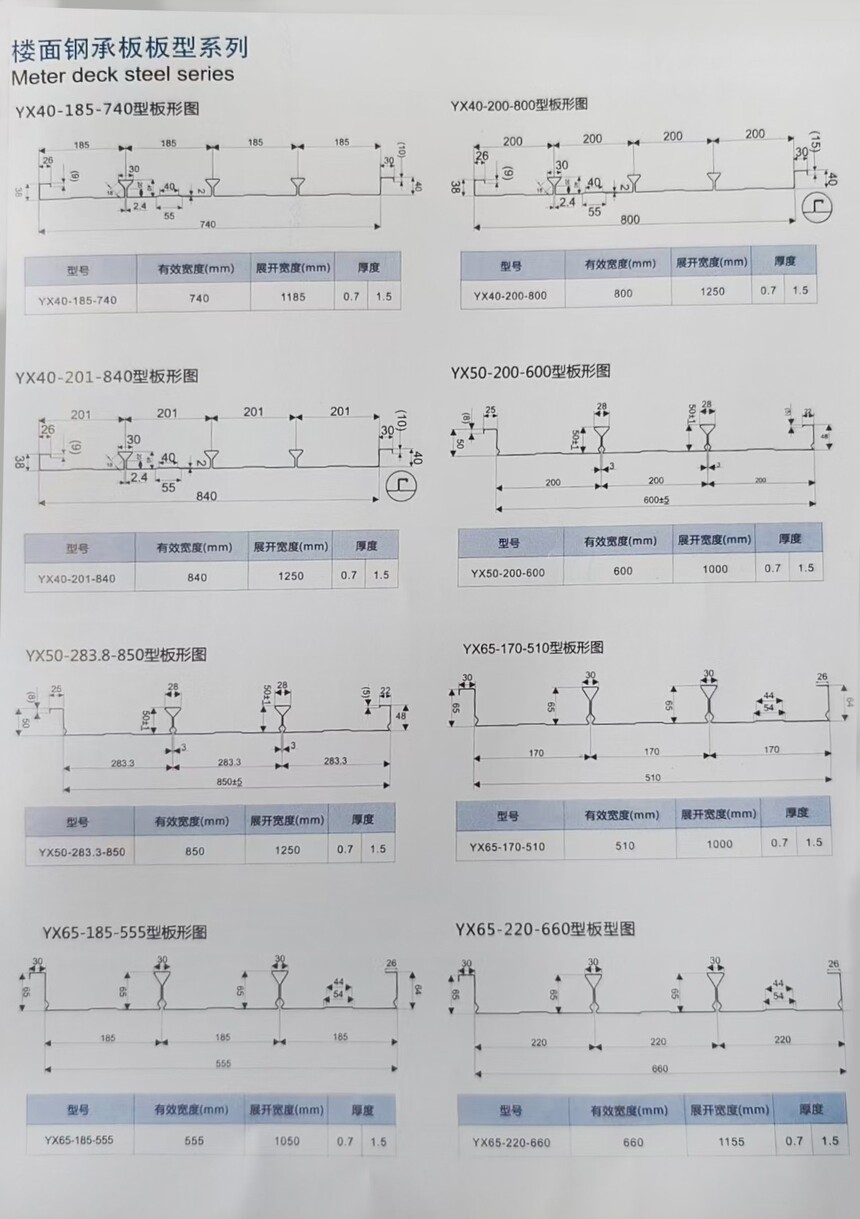 楼面钢承板板型系列
Meter deck steel series
YX40-185-740型板形图
185 185 185 185
26 (9) 30 40 2 30 (10)
38 2.4 55 40
740
型号 有效宽度(mm) 展开宽度(mm) 厚度
YX40-185-740 740 1185 0.7 1.5
YX40-200-800型板形图
200 200 200 200
26 (9) 30 40 2 30 (15)
38 2.4 55 40
800
型号 有效宽度(mm) 展开宽度(mm) 厚度
YX40-200-800 800 1250 0.7 1.5
YX40-201-840型板形图
201 201 201 201
26 (9) 30 40 2 30 (10)
38 2.4 55 40
840
型号 有效宽度(mm) 展开宽度(mm) 厚度
YX40-201-840 840 1250 0.7 1.5
YX50-200-600型板形图
(8) 25 28 50±1 28
50 50±1
3 3
200 200 200
600±5
型号 有效宽度(mm) 展开宽度(mm) 厚度
YX50-200-600 600 1000 0.7 1.5
YX50-283.8-850型板形图
(8) 25 28 50±1 28 (5) 22
50 50±1 48
3 3
283.3 283.3 283.3
850±5
型号 有效宽度(mm) 展开宽度(mm) 厚度
YX50-283.3-850 850 1250 0.7 1.5
YX65-170-510型板形图
30 30 30 26
65 65 65 44 64
54
170 170 170
510
型号 有效宽度(mm) 展开宽度(mm) 厚度
YX65-170-510 510 1000 0.7 1.5
YX65-185-555型板形图
30 30 30 26
65 65 65 44 64
54
185 185 185
555
型号 有效宽度(mm) 展开宽度(mm) 厚度
YX65-185-555 555 1050 0.7 1.5
YX65-220-660型板型图
30 30 30 26
65 65 65 44
54
220 220 220
660
型号 有效宽度(mm) 展开宽度(mm) 厚度
YX65-220-660 660 1155 0.7 1.5